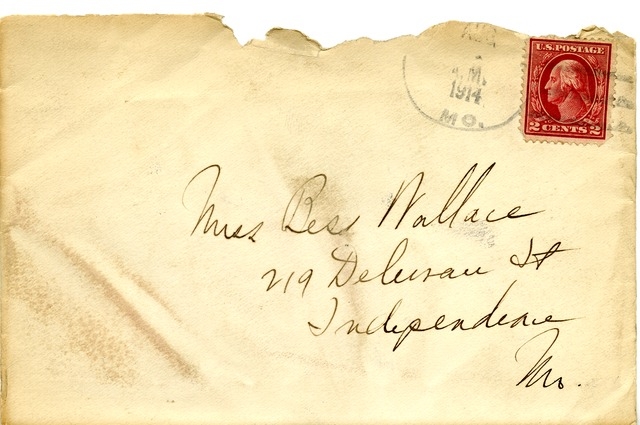 A.M.
1914
MO.
U.S. POSTAGE
2 CENTS 2
Miss Bess Wallace
219 Delaware St
Independence
Mo.